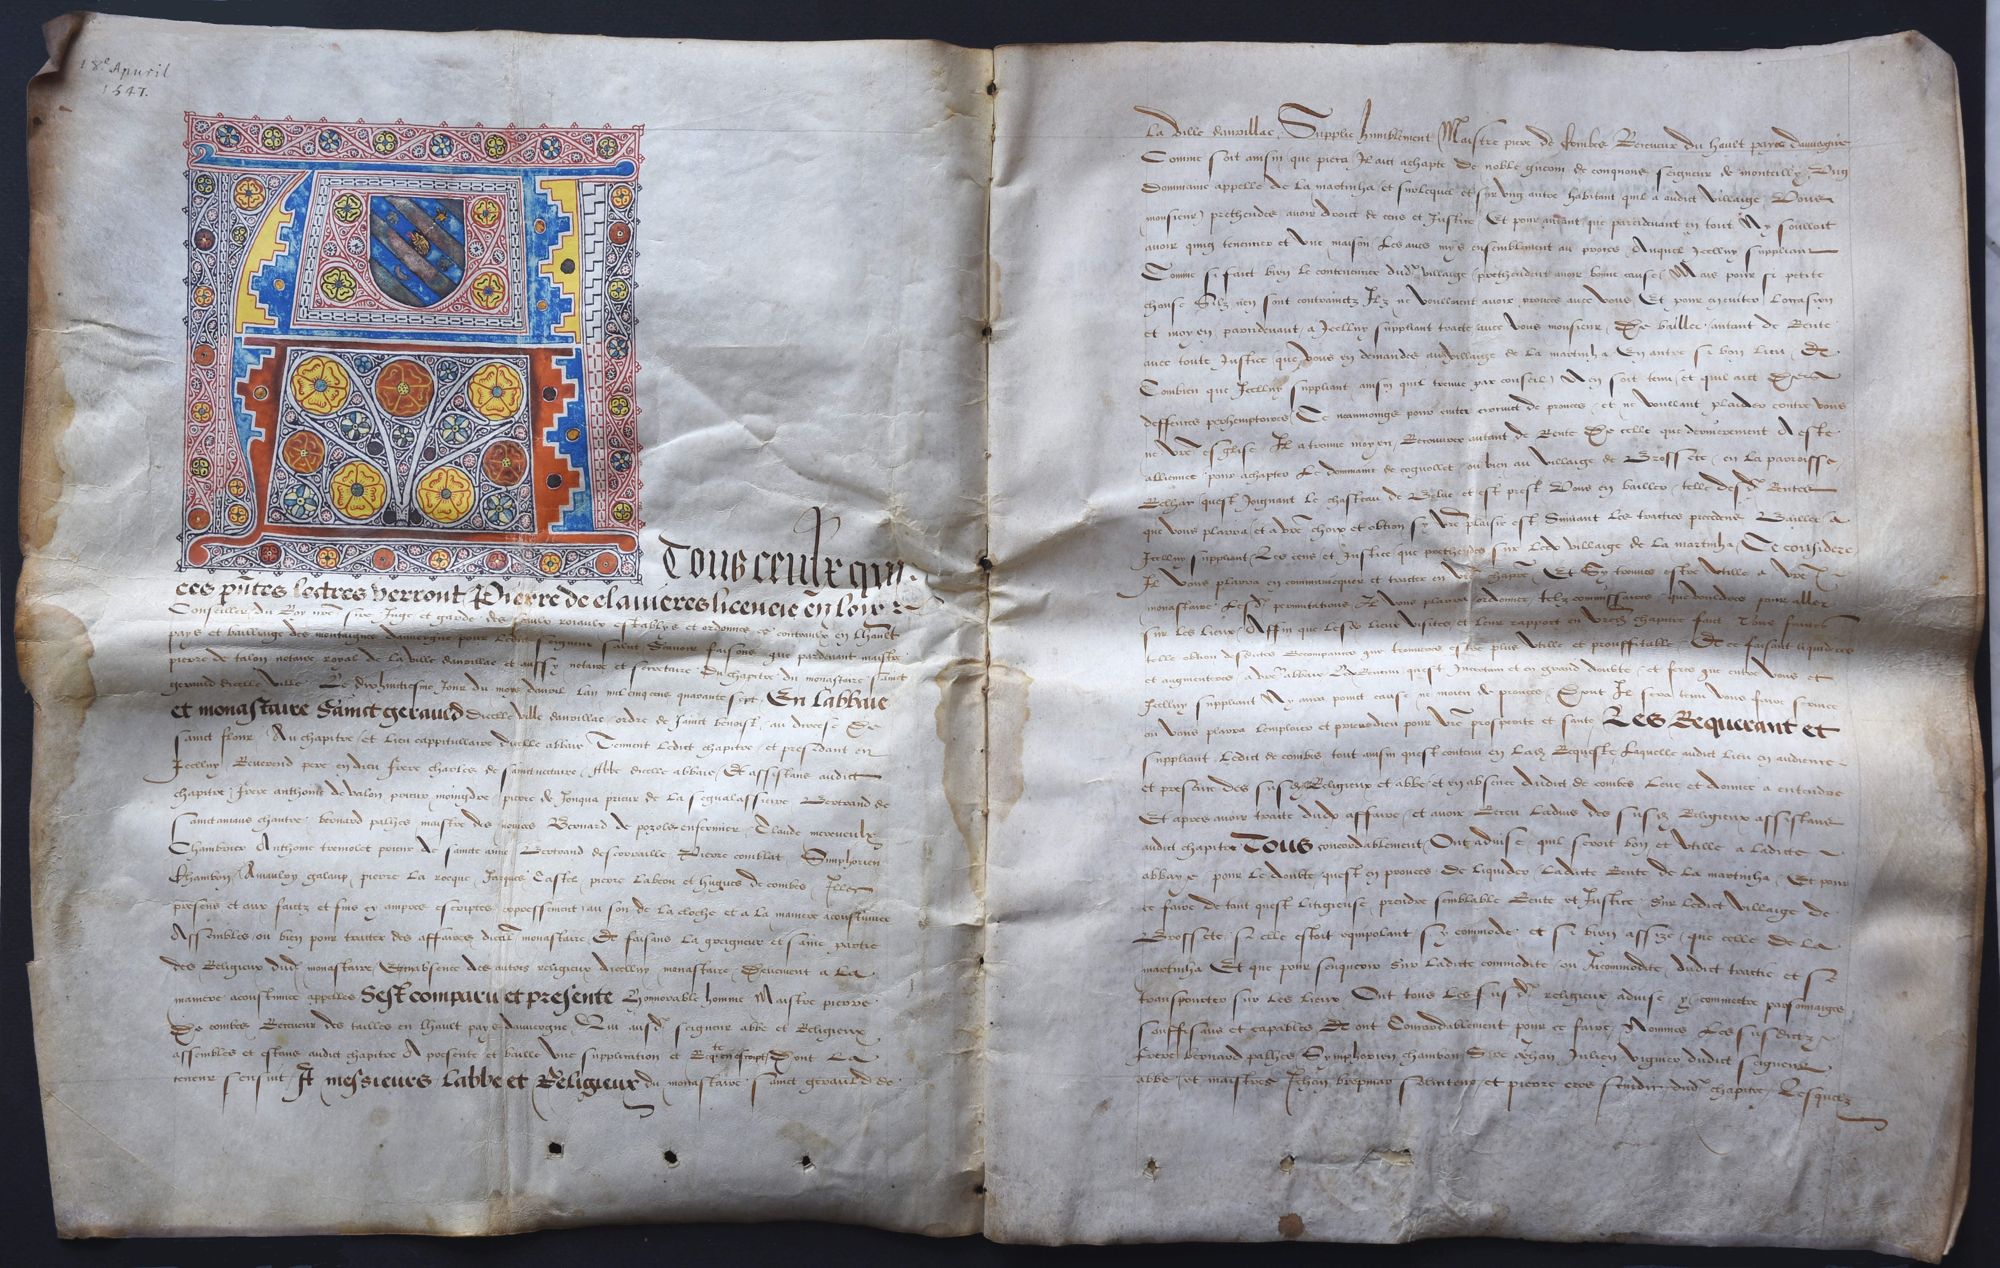 18e Apuril
1547.
A
Tous ceulx qui
ces pntes lectres verront Pierre de clavieres licencie en loix
Conseiller du Roy nre sire Juge et garde des seaulx roiaulx establys et ordonnes es contraulx en lhault
pays et bailliaige des montaignes dauvergne pour ledit seigneur salut Scavoir faisons que pardevant maistre
pierre de talon notaire royal de la ville daurillac et aussy notaire et secretaire du chapitre du monastaire sainct
geraud dicelle ville Le dixhuictiesme Jour du moys davril Lan mil cinq cens quarante sept En Labbaie
et monastaire Sainct geraud dicelle ville daurillac ordre de sainct benoist au diocese De
sainct flour Au chapitre et Lieu cappitullaire dicelle abbaie Tenent Ledict chapitre et presidant en
Jcelluy Reverend pere en dieu frere charles de sainctnectaire Abbe dicelle abbaie Et assistans audict
chapitre frere anthoine de valon prieur moingdre pierre de Jonqua prieur de la segualassiere Bertrand de
Sainctamans chantre bernard palhes maistre des novices Bernard de pozols enfermier Claude
Chambrier Anthoine tremolet prieur de saincte anne Bertrand descorraille Pierre comblat Simphorien
Chambon Amaulry galaup pierre La rocque Jacques Castel pierre Labeon et hugues de combes Jllec
presens et aux faictz et fins cy ampres escriptes expressement au son de la cloche et a la maniere acoustumee
Assembles ou bien pour traiter des affaires dicell monastaire Et faisans La greigneur et saine partie
des Religieux dud monastaire En absence des autres religieux dicelluy monastaire Deuement a La
maniere acoustumee appelles Sest comparu et presente honnorable homme Maistre pierre
De combes Receveur des tailles en lhault pays dauvergne Qui ausd seigneur abbe et Religieux
assembles et estans audict chapitre A presente et baille une supplication et Reqte en escript Dont La
teneur sensuit A messieurs Labbe et Religieux du monastaire sainct gerauld de
La Ville daurillac Supplie humblement Maistre pierre de Combes Receveur du hault pays dauvergne
Comme soit ainsin que pieca Jl aict achapte De noble guion de conquans seigneur de monteilly Ung
Dommaine appelle de La martinha et surlequel et sur ung autre habitant quil a audict villaige Vous
monsieur prethendes avoir droict de cens et Justice Et pour autant que pardevant en tout Ny souloit
avoir quung tenencier et une maison Les aves mys ensemblement au proces Auquel Jcelluy suppliant
Comme si faict bien le contenencier dudt villaige prethendent avoir bonne cause Mais pour si petite
chouse Silz nen sont contrainctz Jlz ne vouldroient avoir proces avec vous Et pour en eviter Loccasion
et moyen pardevant a Jcelluy suppliant traicte avec vous monsieur De bailler autant de Rente
avec toute Justice que vous en demandes au villaige de La martinha En autre si bon Lieu Et
Combien que Jcelluy suppliant ainsin quil treuve par conseil Nen soit tenu et quil aict
deffences perhemptoires Ce neanmoings pour eviter de proces et ne voullant plaider contre vous
ne vre esglise Jl a trouve moyen Recouvrer autant de Rente De celle que dernierement A este
allienee pour achapter Le dommaine de cognollet ou bien au villaige de Brossete en La parroisse
Relhac quest Joignant Le chasteau de Belac et est prest Vous en bailler telle desd Rentes
que vous plairra et a vre choix et obtion sy vre plaisir est Suivant Les traictes precedens Bailler a
Jcelluy suppliant Les cens et Justice que prethendes sur Ledt villaige de La martinha Ce considere
Jl Vous plairra en communicquer et traicter en vre chaptre Et Sy trouves estre utille a vre
monastaire Lesd permutations Jl vous plairra ordonner telz commissaires que vouldres pour aller
sur Les Lieux Affin que Lesd Lieux visites et Leur rapport en vre chapitre faict
telle obtion desdites Recompances que trouveres estre plus utille et prouffitable Et ce faisant liquideres
et augmenteres a vre abbaie Le Revenu quest Incertain et en grand doubte et feres que entre vous et
Jcelluy suppliant Ny aura poinct cause ne moien de proces Dont Jl sera tenu vous faire service
ou vous plairra Lemploier et priera dieu pour vre prosperite et sante Les Requerant et
suppliant Ledict de combes tout ainsin quest contenu en Lad Requeste Laquelle audict Lieu en audience
et presence des susd Religieux et abbe et en absence dudict de combes Leue et donnee a entendre
Et apres avoir traicte dudt affaire et avoir Receu Ladvis des susd Religieux assistans
audict chapitre Tous concordablement Ont advise quil seroit bon et utille a Ladicte
abbaye pour Le doubte quest en proces De liquider Ladicte Rente de La martinha Et pour
ce faire de tant quest Litigieuse prendre semblable Rente et Justice Sur Ledict villaige de
Brossete si elle estoit equipolant sy commode et si bien assize que celle De La
martinha Et que pour senquerir Sur Ladicte commodite ou Jncommodite dudict traicte et se
transpourter sur Les Lieux Ont tous Les susd religieux advise y commectre parsonnaiges
souffisans et capables Et ont Concordablement pour ce faire Nommes Les susdictz
frere bernard palhes Symphorien chambon Sire Jehan Julien viguier dudict seigneur
abbe et maistres Jehan et pierre cros scindic dud chapitre Lesquelz